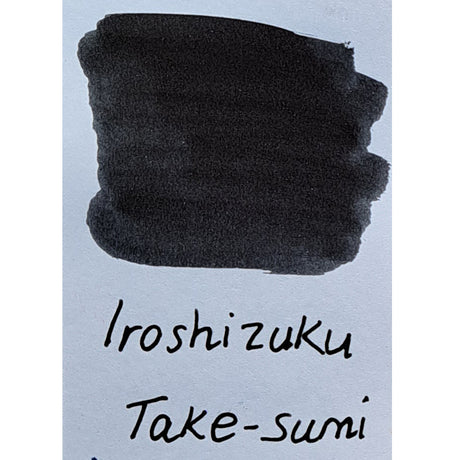 Iroshizuku
Take-sumi